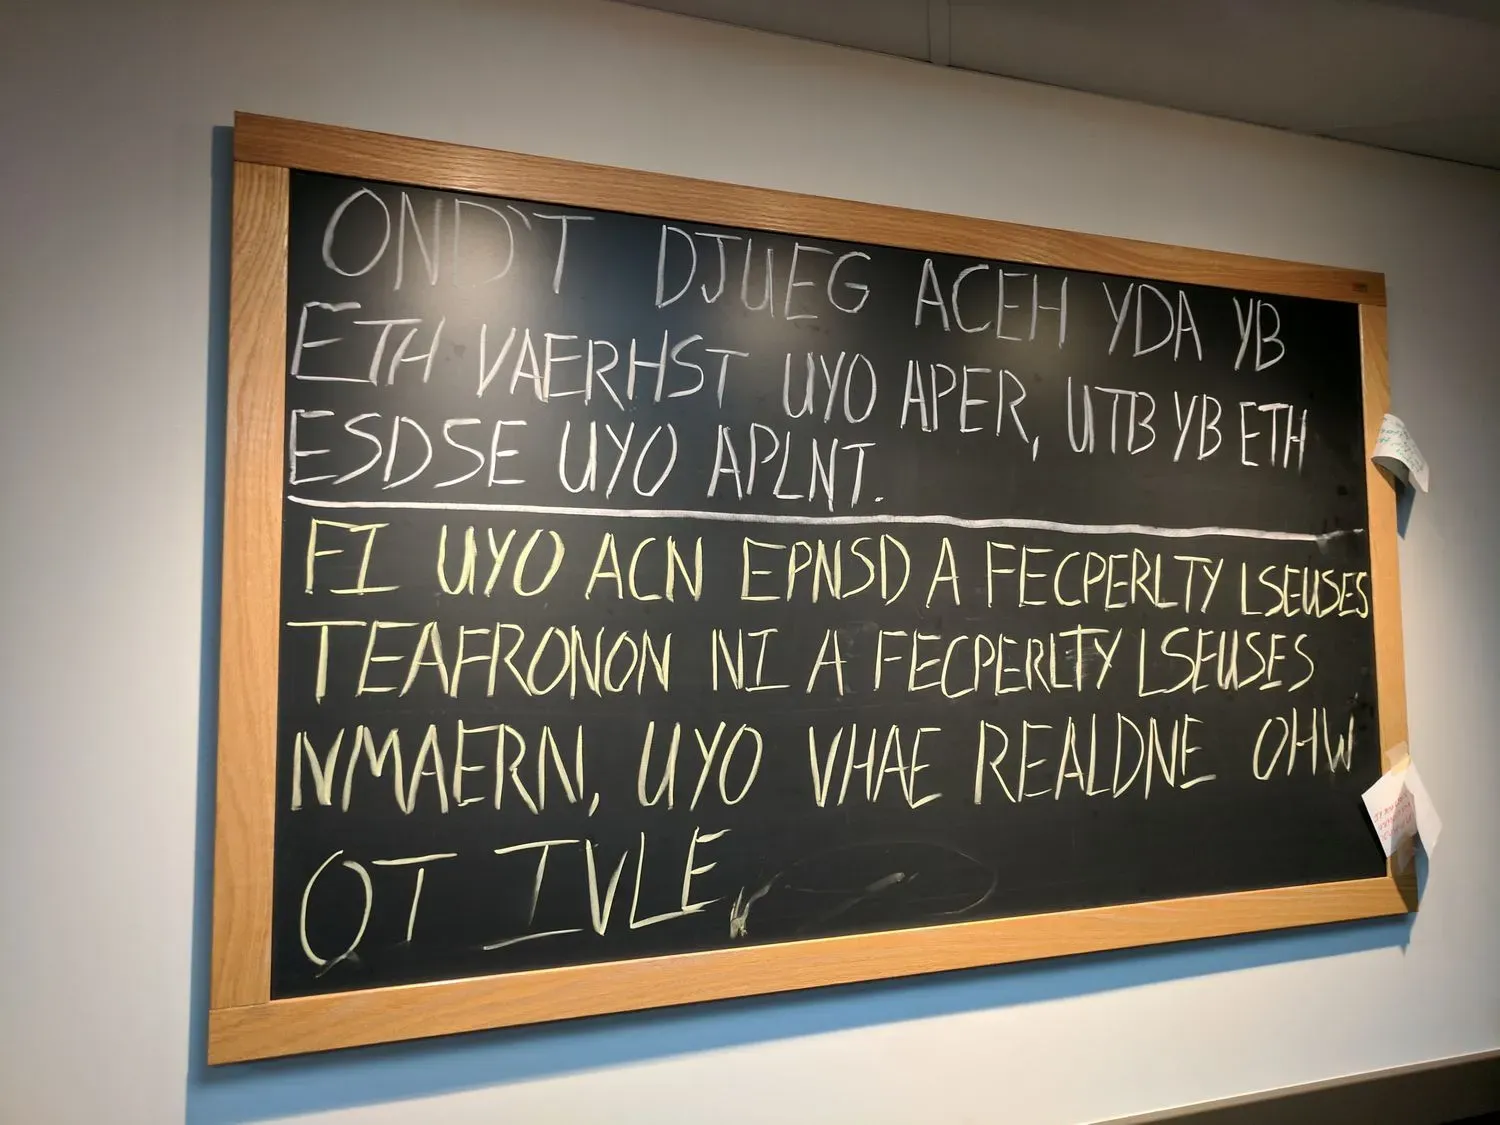 OND'T DJUEG ACEH YDA YB
ETH VAERHST UYO APER, UTB YB ETH
ESDSE UYO APLNT.
FI UYO ACN EPNSD A FECPERLTY LSEUSES
TEAFRONON NI A FECPERLTY LSEUSES
NMAERN, UYO VHAE REALDNE OHW
OT IVLE